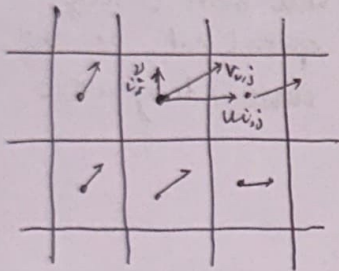 v i,j V i,j
u i,j